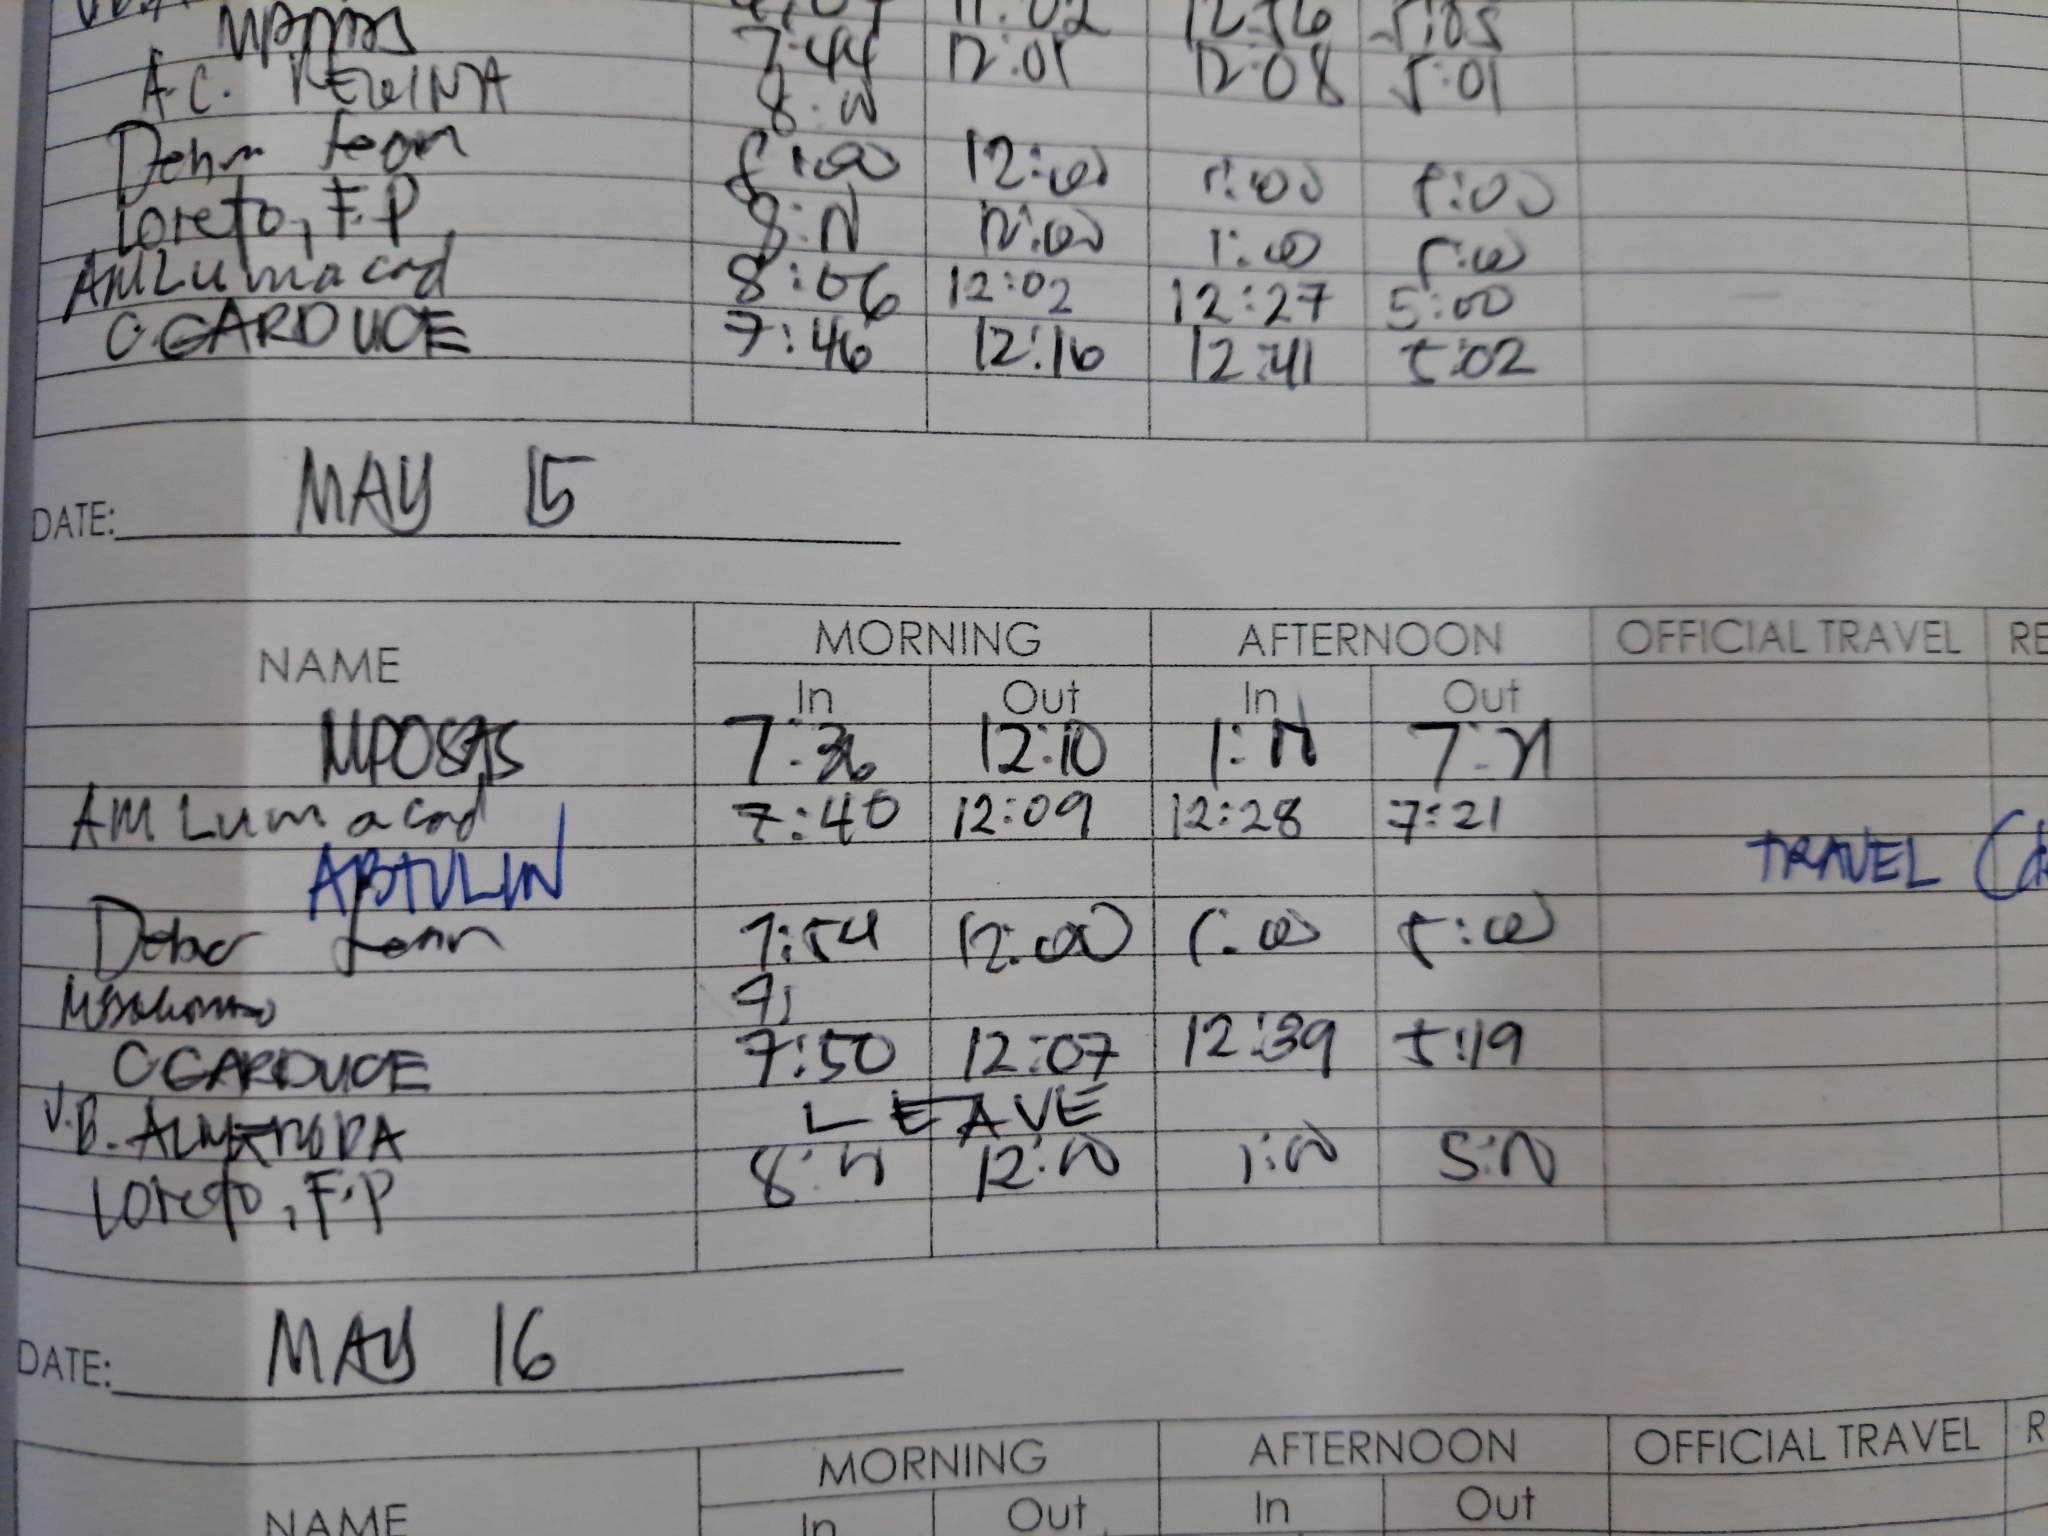 7:44 12:01 12:08 5:01
A.C. REGINA 8:00
8:00 12:00 1:00 5:00
Loreto, F.P. 8:00 12:00 1:00 5:00
AMLumacad 8:06 12:02 12:27 5:00
C.GARDUCE 7:46 12:16 12:41 5:02
DATE: MAY 15
NAME MORNING AFTERNOON OFFICIAL TRAVEL
In Out In Out
MPOSAS 7:36 12:10
AM Lumacad 7:40 12:09 12:28 7:21
ABTULIN TRAVEL
7:54 12:00 1:00 5:00
CGARDUCE 7:50 12:07 12:39 5:19
V.B. ALMENDRA LEAVE
Loreto, F.P 8:00 12:00 1:00 5:00
DATE: MAY 16
NAME MORNING AFTERNOON OFFICIAL TRAVEL
In Out In Out